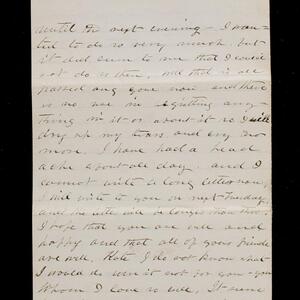 until the next evening - I wan-
ted to do so very much but
it did seem to me that I could
not do so then, and that is all
passed and gone now and there
is no use in regretting any
thing in it or about it so I will
dry up my tears and cry no
more. I have had a head
ache about all day and I
cannot write a long letter now,
I will write to you on next Tuesday
and will be longer than this.
I hope that you are well and
happy and that all of your friends
are well. Kate I do not know what
I would do were it not for you - you
Whom I love so well. It seems